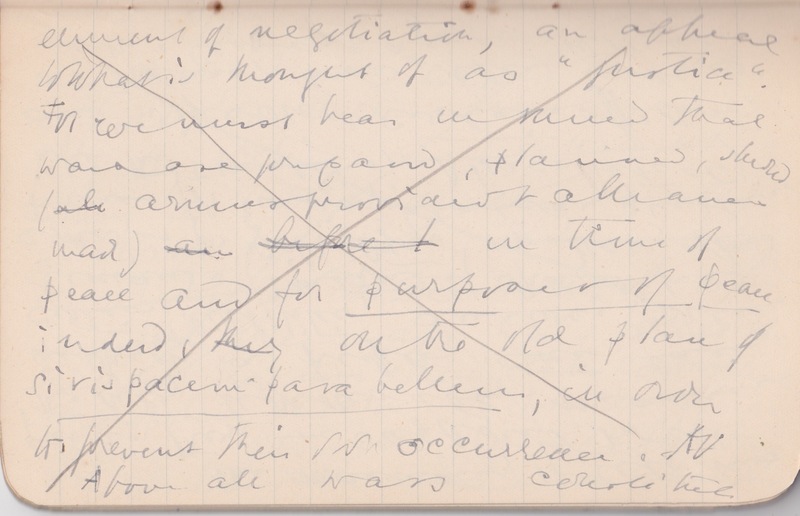 element of negotiation, an appeal
to what is thought of as "justice".
For we must bear in mind that
wars are prepared, planned,
( armies provided & alliances
made) an before t in time of
peace and for purposes of peace
indeed, they on the old plan of
si vis pacem para bellum, in order
to prevent their own occurrence.
Above all wars constitute